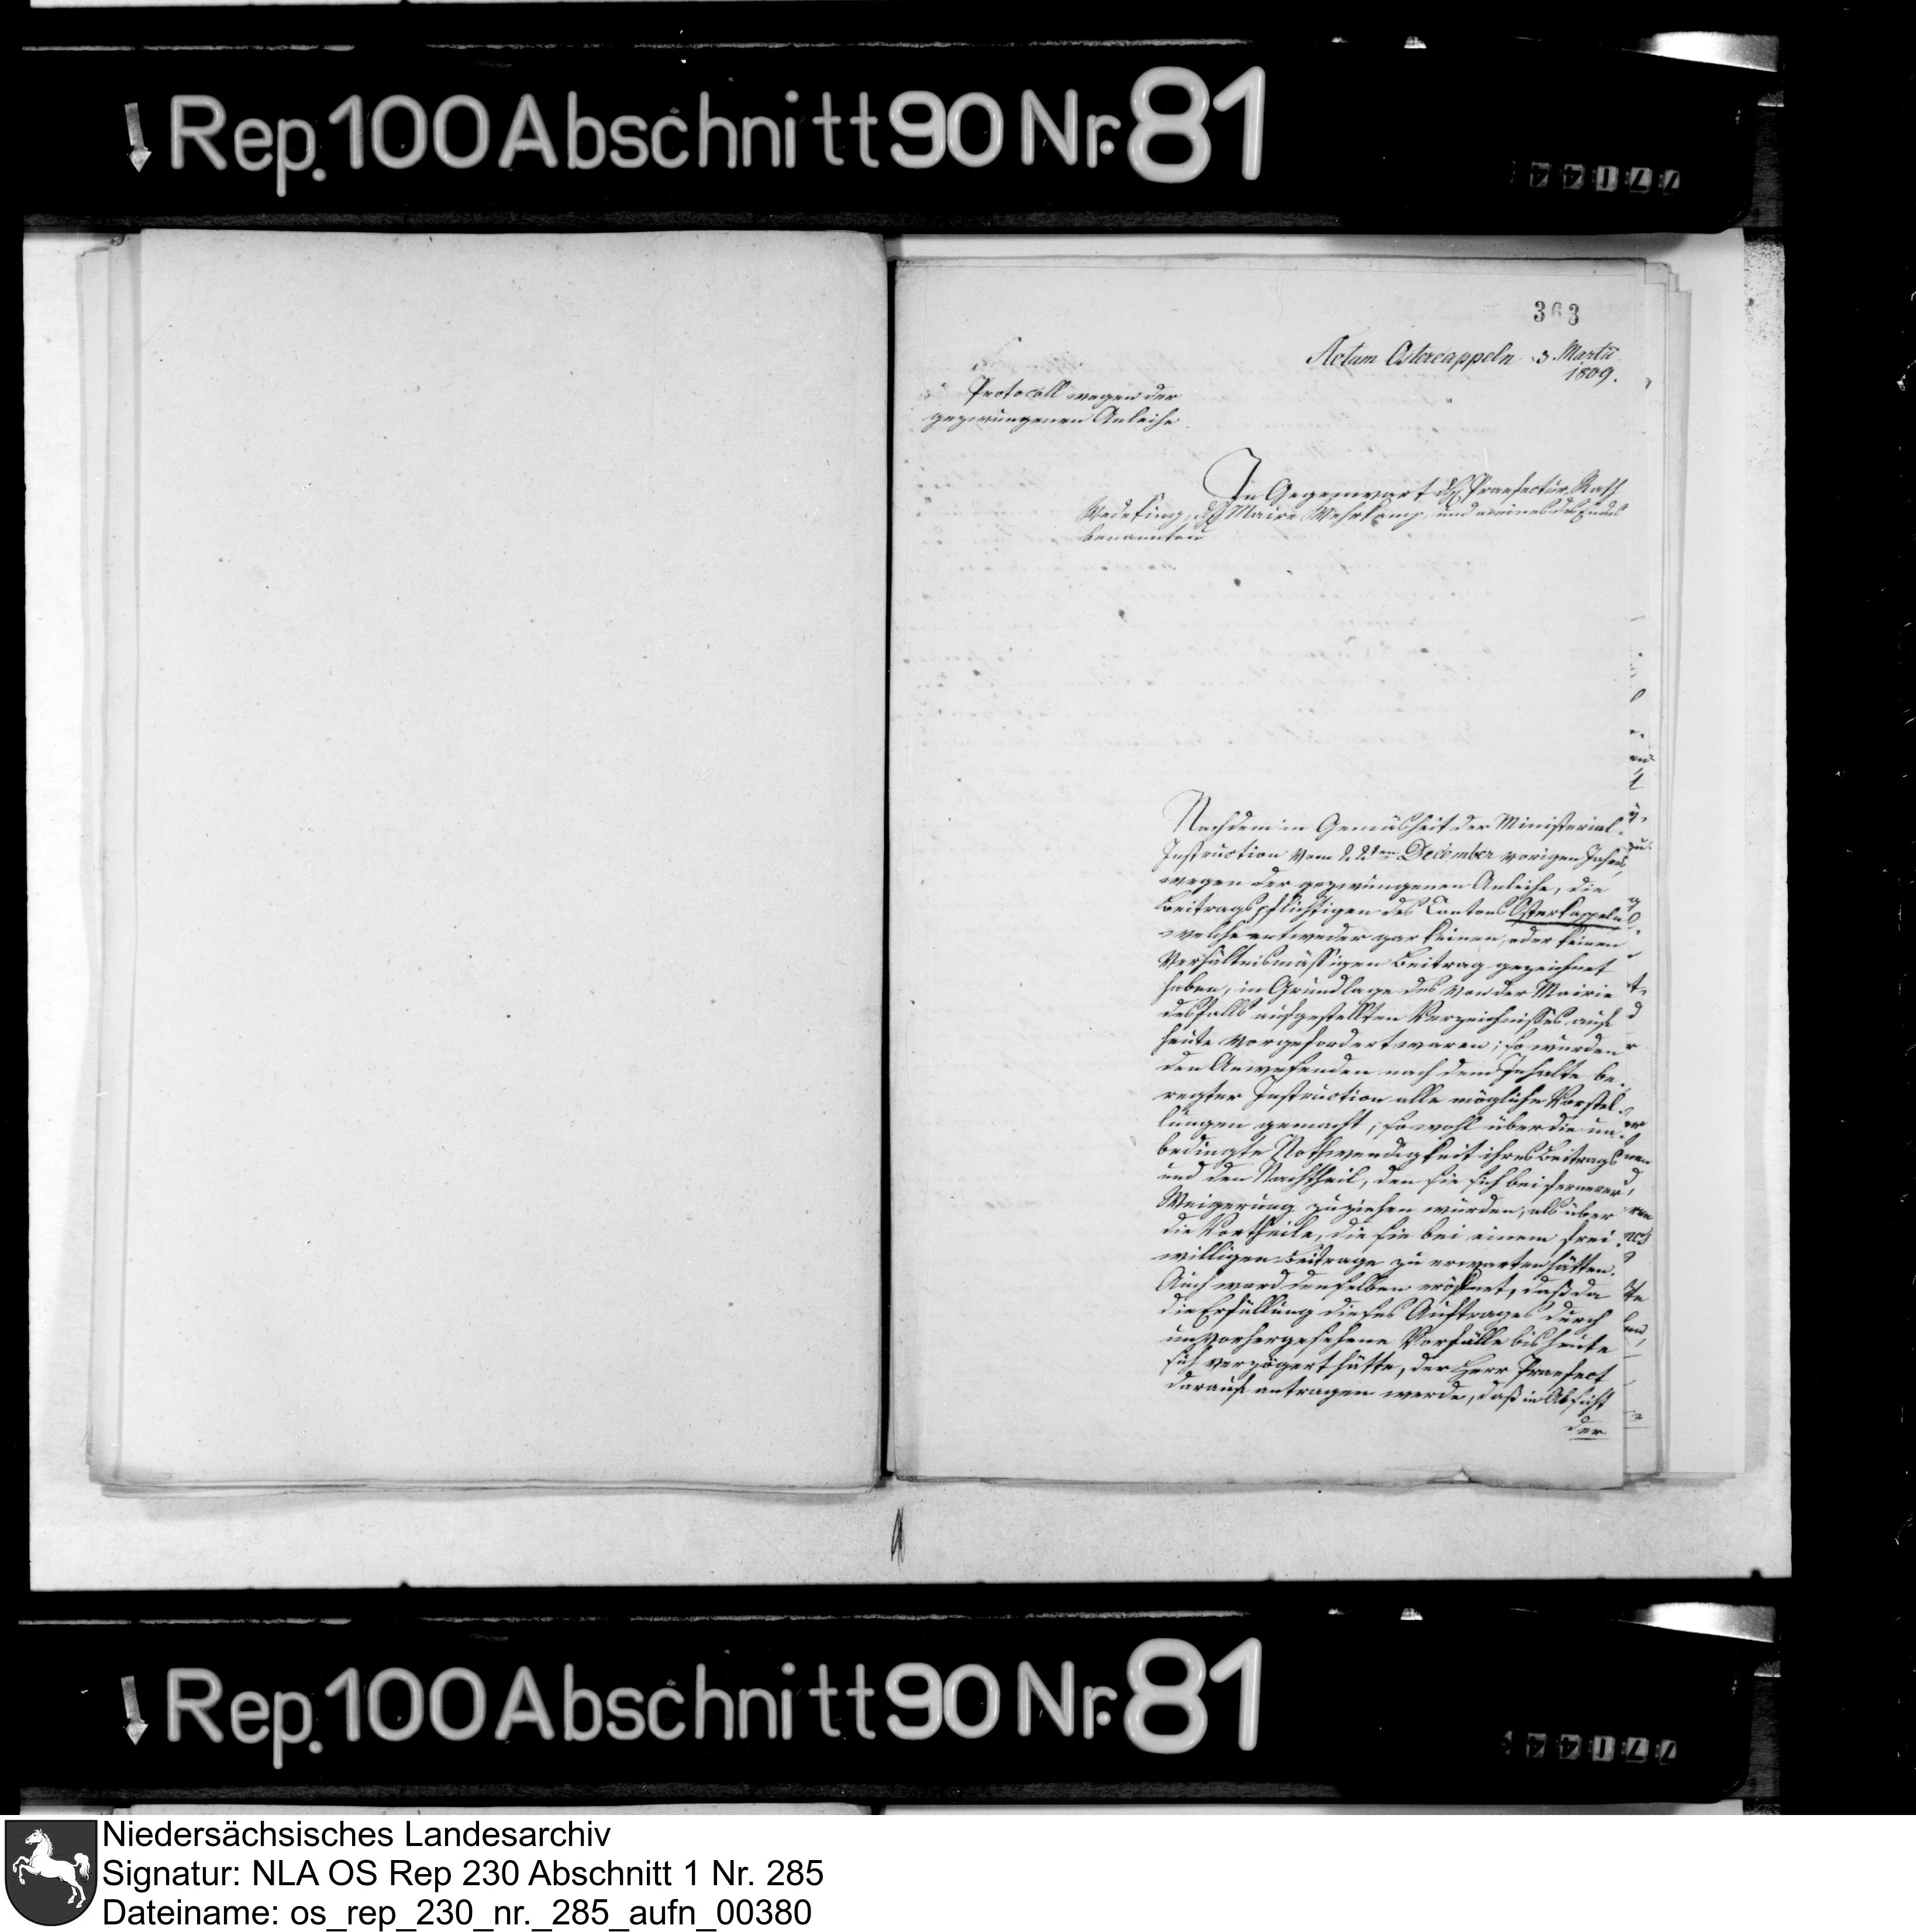 Rep. 100 Abschnitt 90 Nr. 81
363
Actum Ostercappeln 3. Martii
1809.
Protocoll wegen der
gezwungenen Anleihe
In Gegenwart des Praefectur Rath
Maire Wehrkamp, und meines des Endes
benannten
Nachdem in Gemäsheit der Ministerial
Instruction vom 22ten December vorigen Jahrs,
wegen der gezwungenen Anleihe, die
Beitragspflichtigen des Cantons Osterkappeln
welche entweder gar keinen, oder keinen
verhältnismässigen Beitrag gezeichnet
haben, in Grundlage des von der Mairie
desfalls aufgestellten Verzeichnisses auf
heute vorgefordert waren; so wurden
den Anwesenden nach dem Inhalte be-
regter Instruction alle mögliche Vorstel-
lungen gemacht, sowohl über die un-
bedingte Nothwendigkeit ihres Beitrags
und den Nachtheil, den sie sich bei fernerer
Weigerung zuziehen würden, als über
die Vortheile, die sie bei einem frei-
willigen Beitrage zu erwarten hätten.
Auch ward denselben eröfnet, daß da
die Erfüllung dieses Auftrages durch
unvorhergesehene Vorfälle bis heute
sich verzögert hätte, der Herr Praefect
darauf antragen werde, daß in Absicht
der
Rep. 100 Abschnitt 90 Nr. 81
Niedersächsisches Landesarchiv
Signatur: NLA OS Rep 230 Abschnitt 1 Nr. 285
Dateiname: os_rep_230_nr._285_aufn_00380